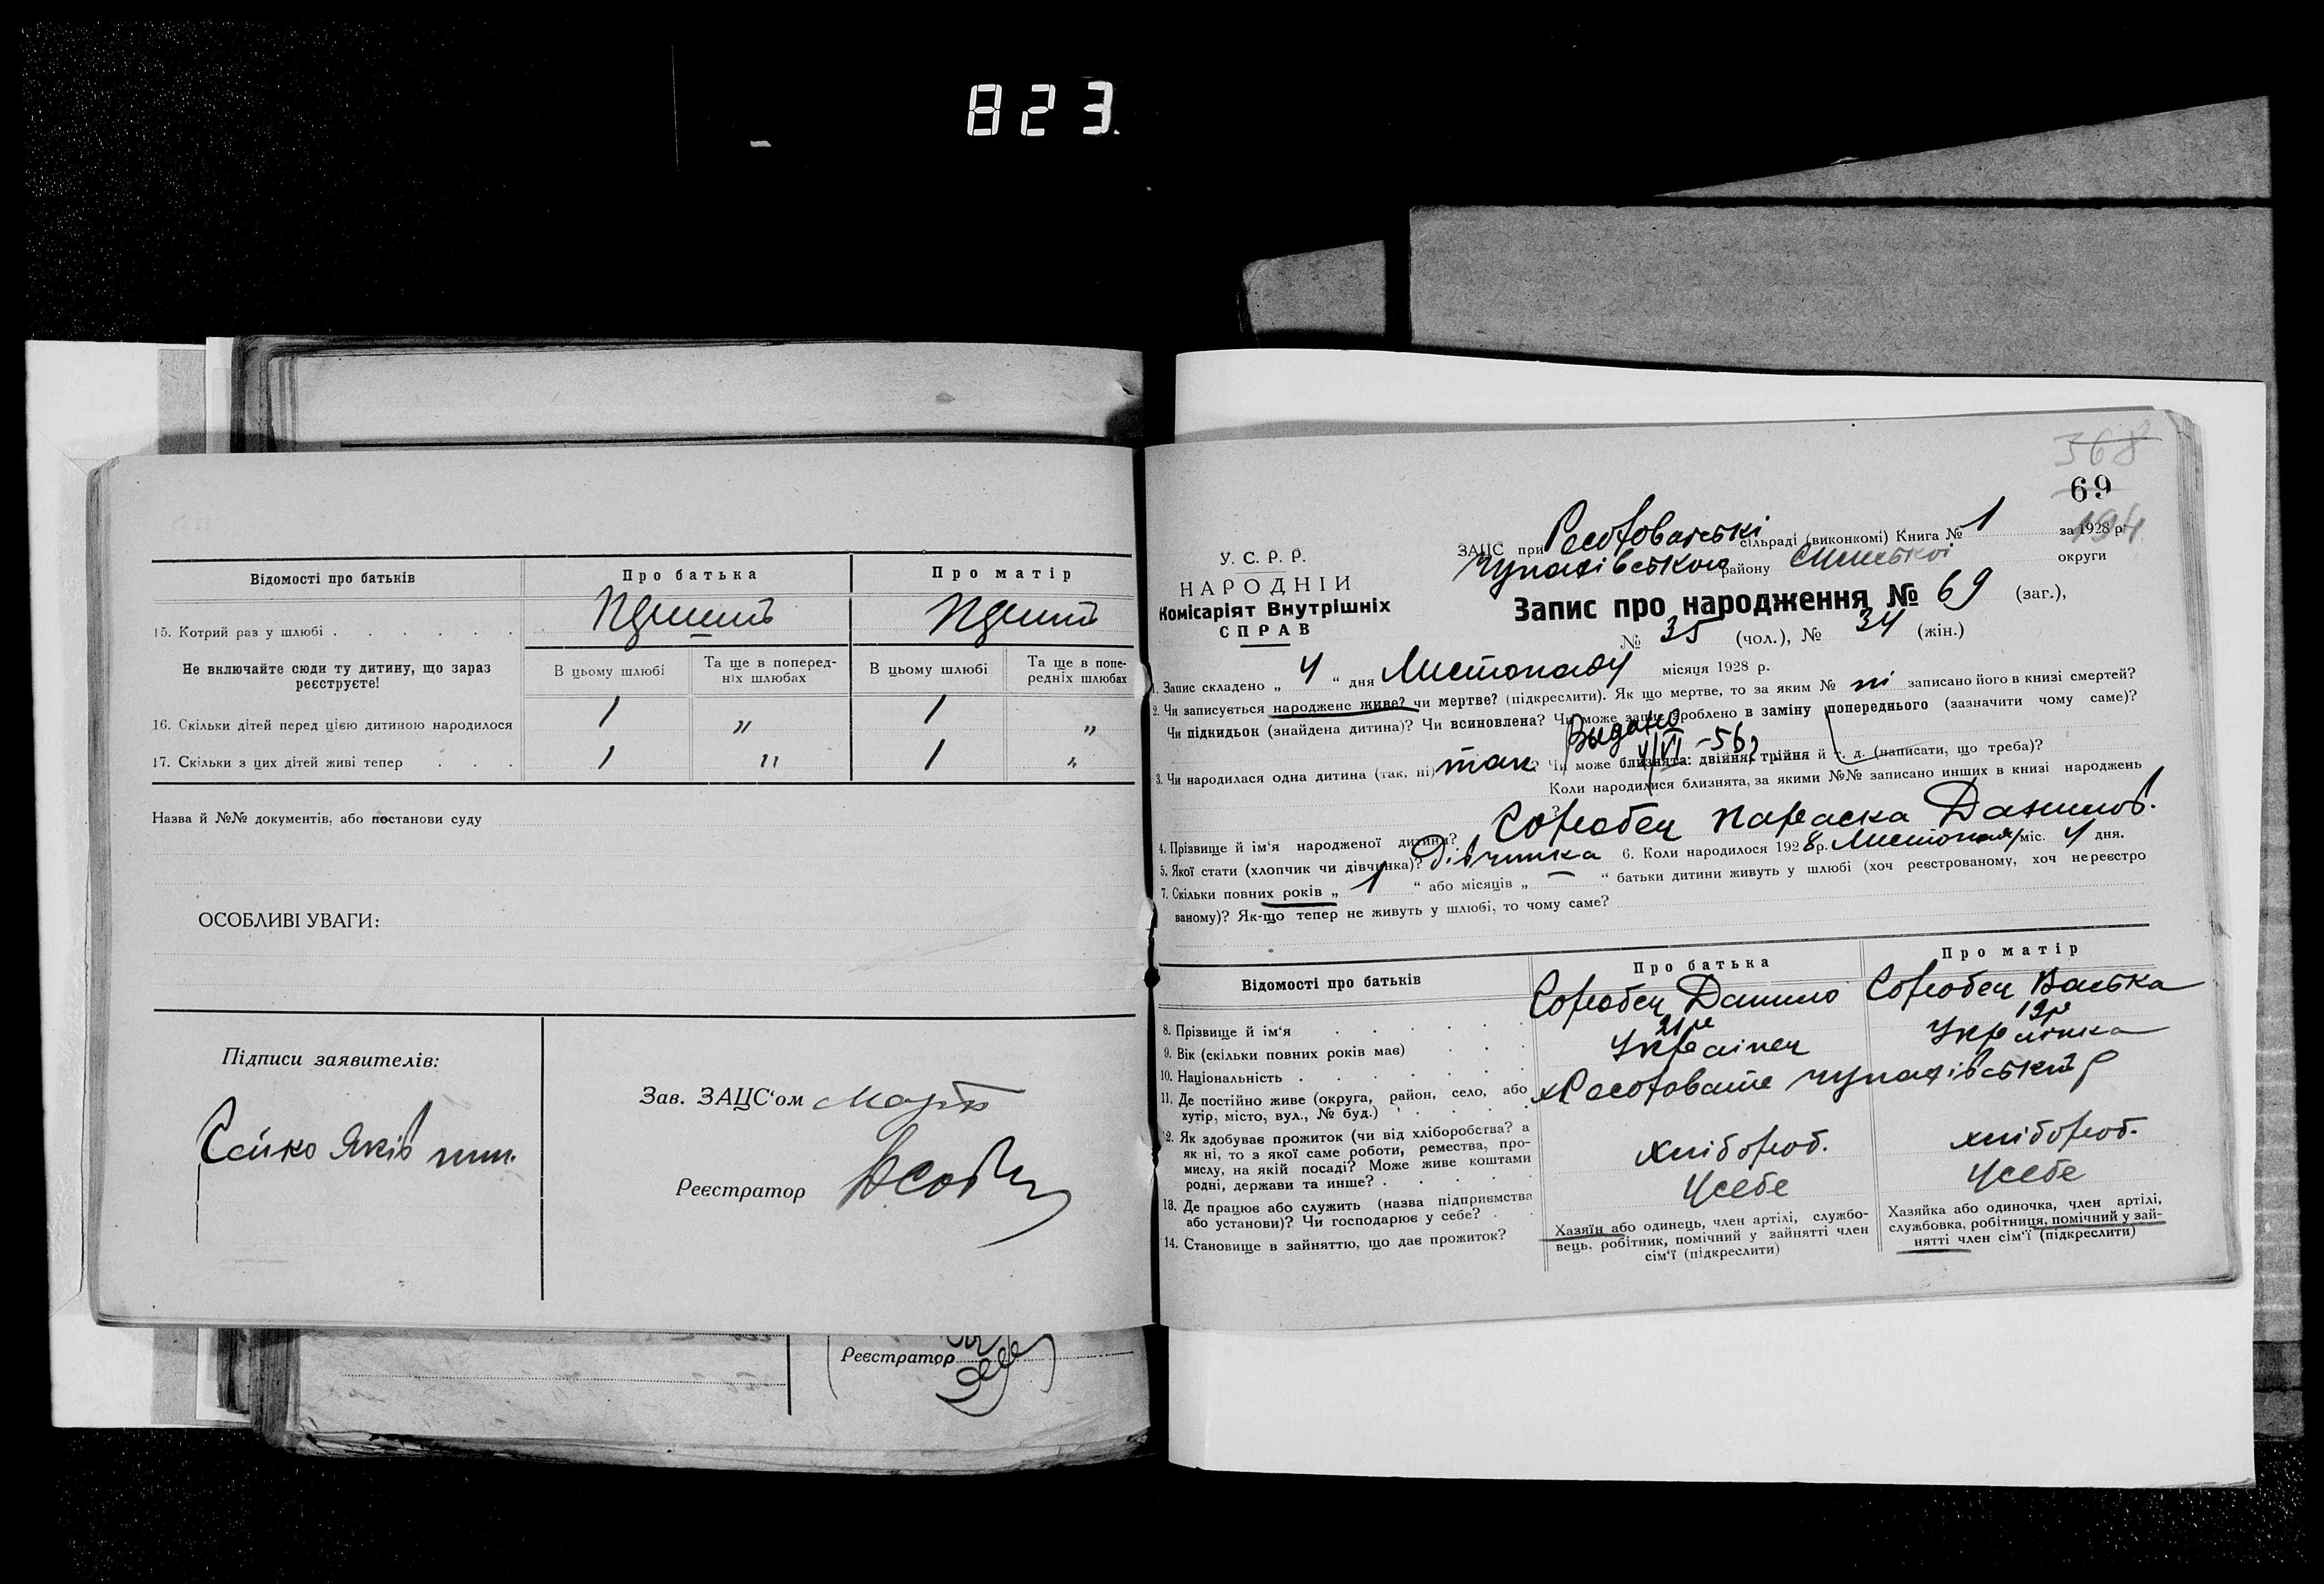 823.
Відомості про батьків
Про батька
Про матір
15. Котрий раз у шлюбі
Не включайте сюди ту дитину, що зараз реєструєте!
В цьому шлюбі
Та ще в поперед-
ніх шлюбах
В цьому шлюбі
Та ще в попе-
редніх шлюбах
16. Скільки дітей перед цією дитиною народилося
1 " 1 "
17. Скільки з цих дітей живі тепер
1 " 1 "
Назва й №№ документів, або постанови суду
ОСОБЛИВІ УВАГИ:
Підписи заявителів:
Сейко Яків
Зав. ЗАЦС'ом
Реєстратор
Реєстратор
368
69
194
У. С. Р. Р.
НАРОДНІЙ
Комісаріят Внутрішніх
СПРАВ
ЗАЦС при сільраді (виконкомі) Книга № 1 за 1928 р.
району Сумської округи
Запис про народження № 69 (заг.),
№ 35 (чол.), № 34 (жін.)
1. Запис складено „ 4 “ дня Листопаду місяця 1928 р.
2. Чи записується народжене живе? чи мертве? (підкреслити). Як що мертве, то за яким № ні записано його в книзі смертей?
Чи підкидьок (знайдена дитина)? Чи всиновлена? Чи може запис зроблено в заміну попереднього (зазначити чому саме)?
Выдано
4/VI-56
3. Чи народилася одна дитина (так, ні) так ? Чи може близнята: двійня, трійня й т. д. (написати, що треба)?
Коли народилися близнята, за якими №№ записано инших в книзі народжень
4. Прізвище й ім'я народженої дитини? Параска Данилов.
5. Якої стати (хлопчик чи дівчинка)? Дівчинка 6. Коли народилося 1928 р. Листопад міс. 4 дня.
7. Скільки повних років „ 1 “ або місяців „ — “ батьки дитини живуть у шлюбі (хоч реєстрованому, хоч нереєстро
ваному)? Як-що тепер не живуть у шлюбі, то чому саме?
Відомості про батьків
Про батька
Про матір
8. Прізвище й ім'я
Данило
9. Вік (скільки повних років має)
21р
19р
10. Національність
Українец
Українка
11. Де постійно живе (округа, район, село, або
хутір, місто, вул., № буд.)
12. Як здобуває прожиток (чи від хліборобства? а
як ні, то з якої саме роботи, ремества, про-
мислу, на якій посаді? Може живе коштами
родні, держави та инше?
хлібороб.
хлібороб.
13. Де працює або служить (назва підприємства
або установи)? Чи господарює у себе?
Усебе
Усебе
14. Становище в зайняттю, що дає прожиток?
Хазяїн або одинець, член артілі, службо-
вець, робітник, помічний у зайнятті член
сім'ї (підкреслити)
Хазяйка або одиночка, член артілі,
службовка, робітниця, помічний у зай-
нятті член сім'ї (підкреслити)